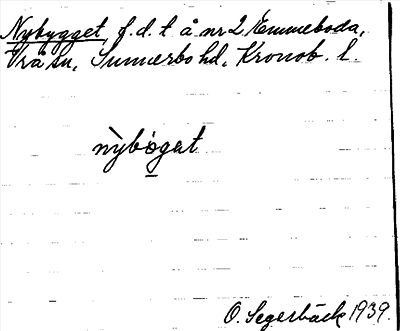 Nybygget, f.d.t. å nr 2 Emmeboda,
Vrå sn, Sunnerbo hd, Kronob. l.
nỳbö̀get
O. Segerbäck 1939.